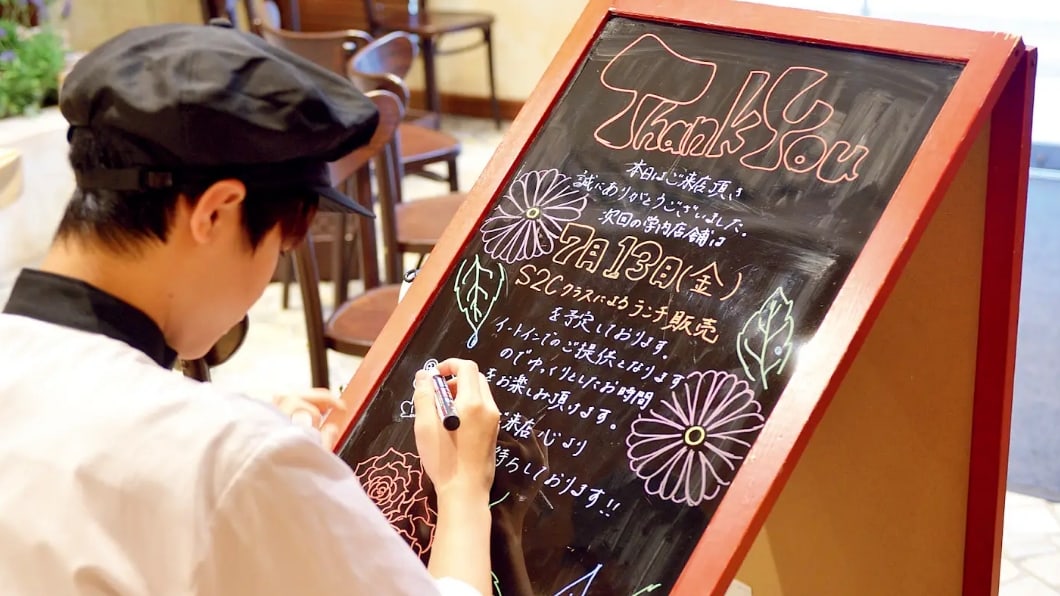 Thank You
本日はご来店頂き
誠にありがとうございました。
次回の学内店舗は
7月13日(金)
S2Cクラスによるランチ販売
を予定しております。
イートインでのご提供となります
のでゆっくりとしたお時間
をお楽しみ頂けます。
来店心より
待ちしております!!